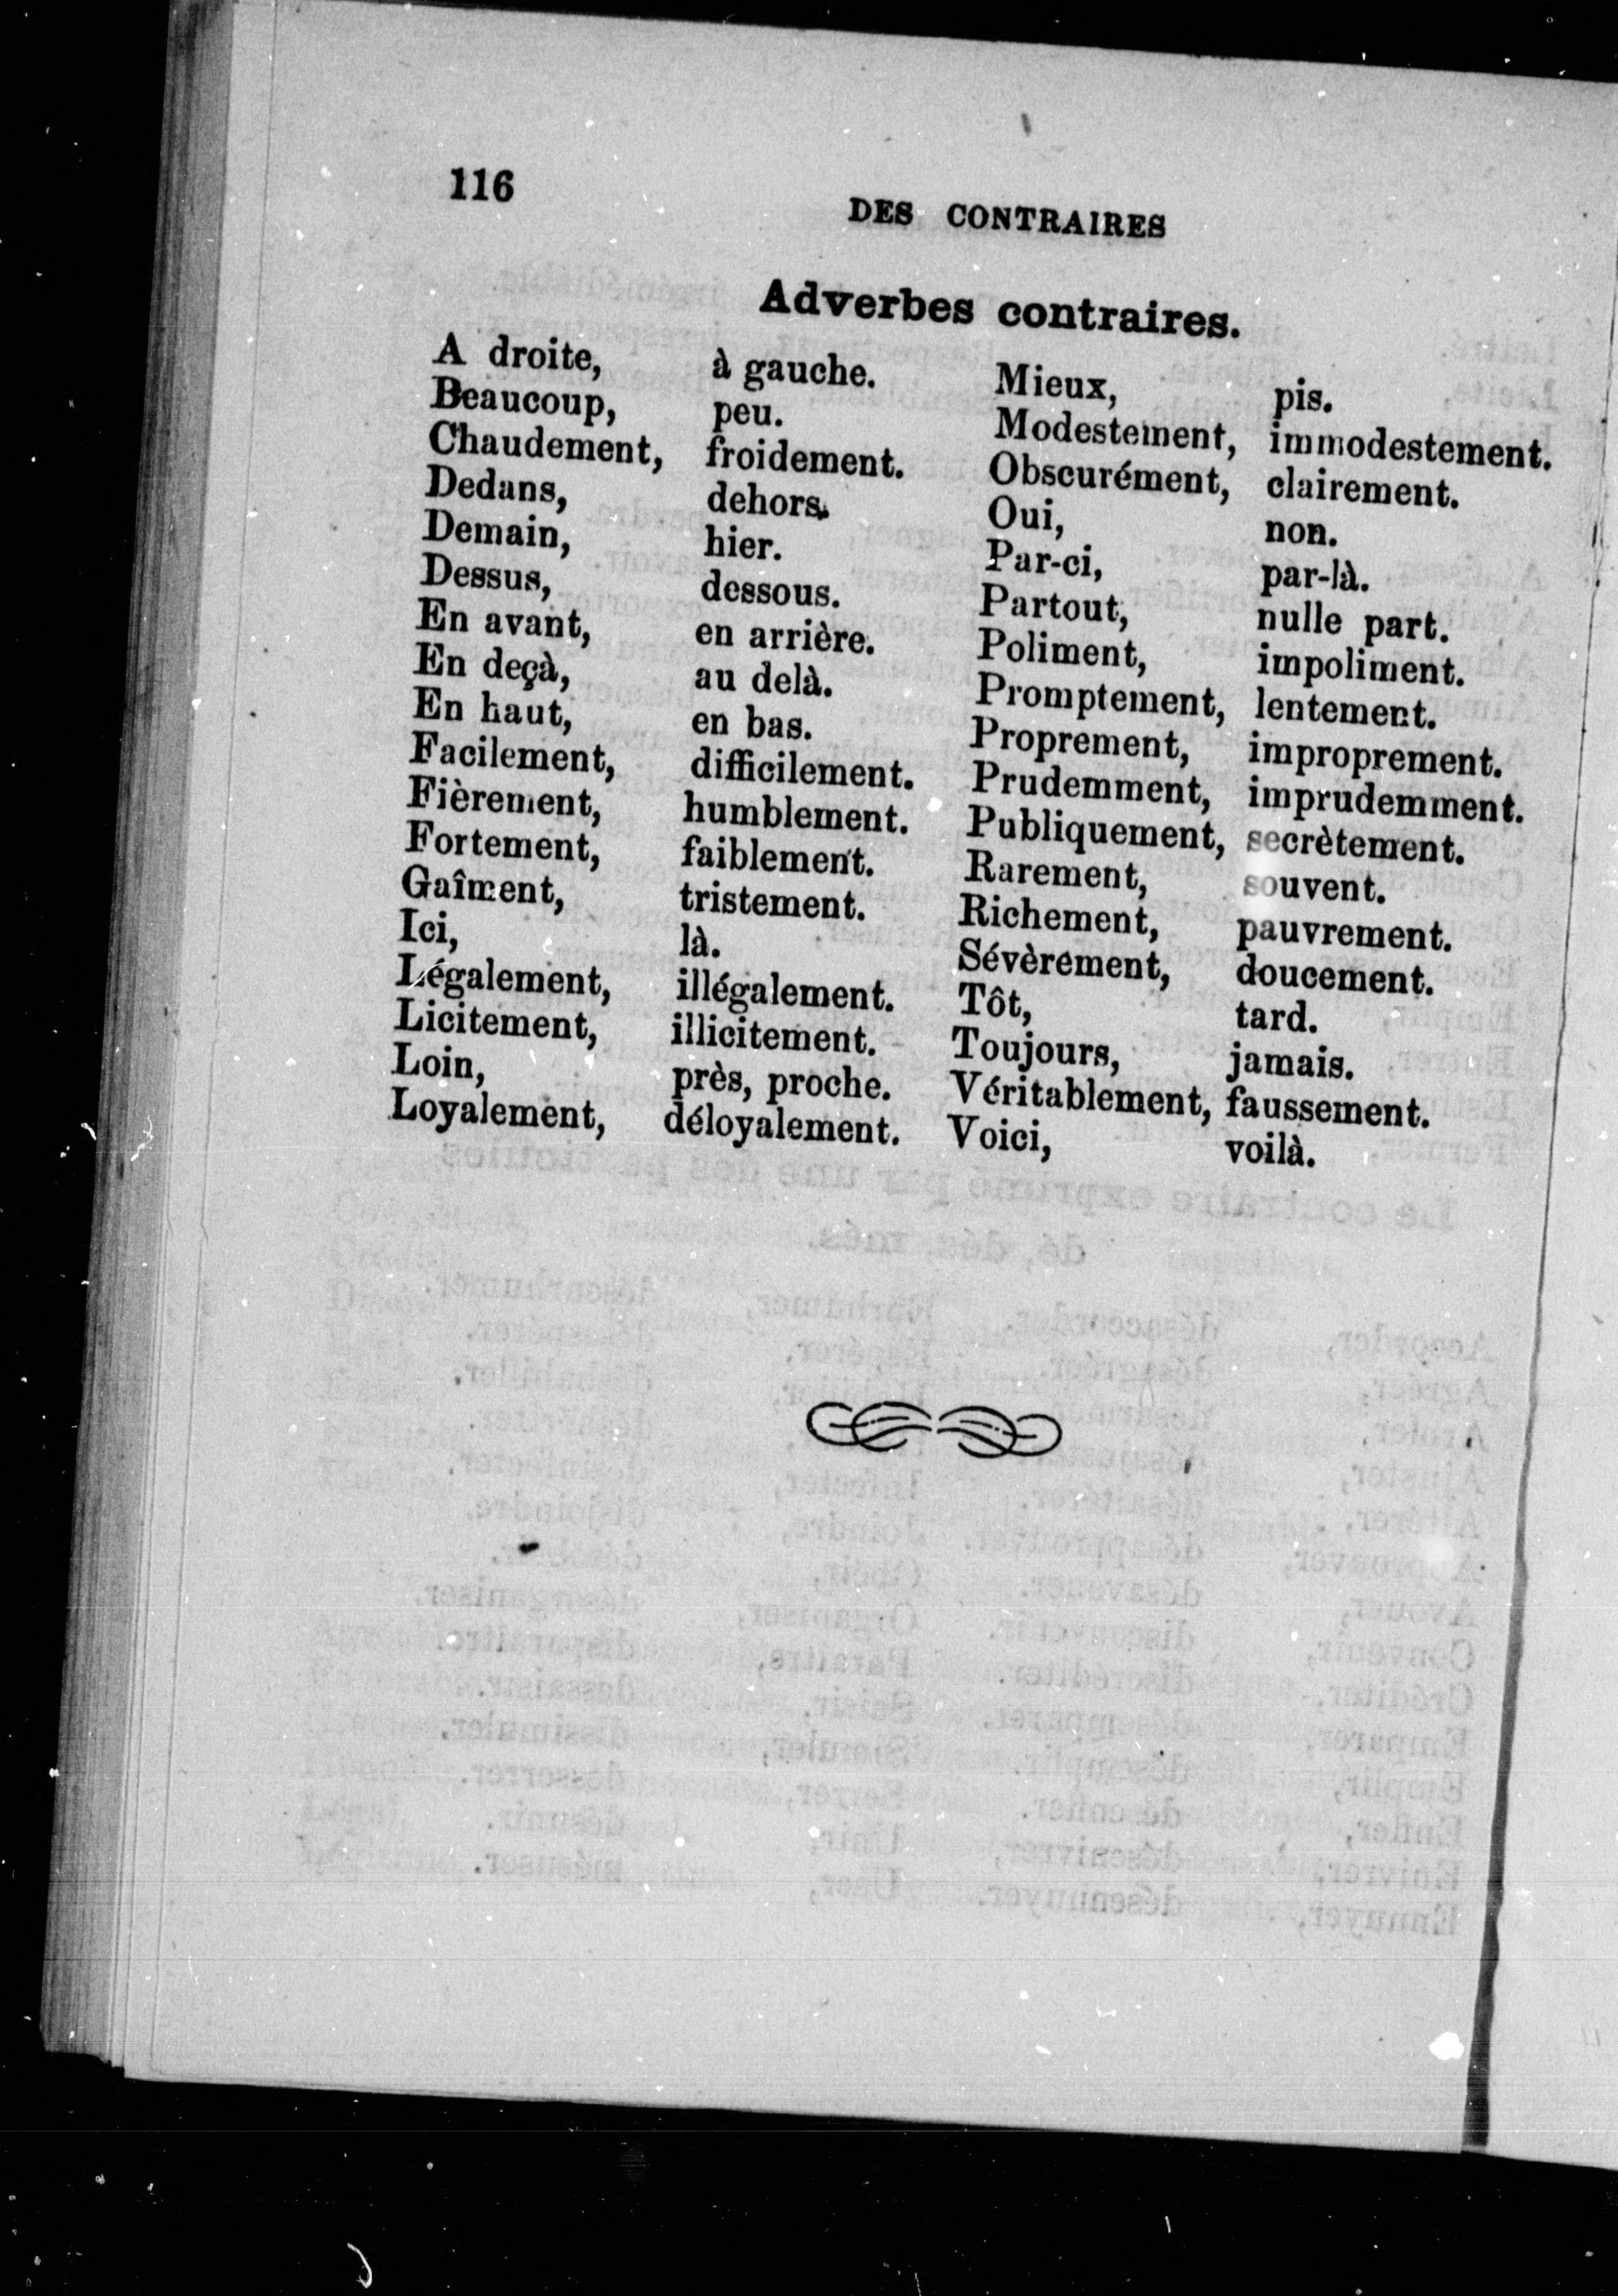 116
DES CONTRAIRES
Adverbes contraires.
A droite, à gauche.
Beaucoup, peu.
Chaudement, froidement.
Dedans, dehors.
Demain, hier.
Dessus, dessous.
En avant, en arrière.
En deçà, au delà.
En haut, en bas.
Facilement, difficilement.
Fièrement, humblement.
Fortement, faiblement.
Gaîment, tristement.
Ici, là.
Légalement, illégalement.
Licitement, illicitement.
Loin, près, proche.
Loyalement, déloyalement.
Mieux, pis.
Modestement, immodestement.
Obscurément, clairement.
Oui, non.
Par-ci, par-là.
Partout, nulle part.
Poliment, impoliment.
Promptement, lentement.
Proprement, improprement.
Prudemment, imprudemment.
Publiquement, secrètement.
Rarement, souvent.
Richement, pauvrement.
Sévèrement, doucement.
Tôt, tard.
Toujours, jamais.
Véritablement, faussement.
Voici, voilà.